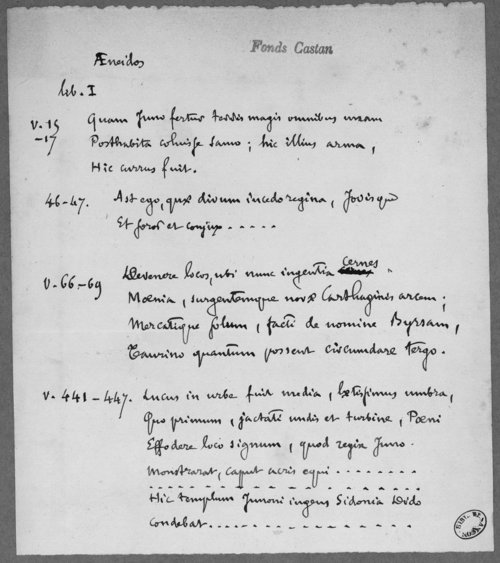 Fonds Castan
Æneidos
lib. I
V. 15 Quam Juno fertur terris magis omnibus unam
-17 Posthabita coluisse Samo ; hic illius arma,
Hic currus fuit.
46-47. Ast ego, quæ divum incedo regina, Jovisque
Et soror et conjux .....
cernes
V. 66-69 Devenere locos, ubi nunc ingentia
Mœnia, surgentemque novæ Carthaginis arcem ;
Mercatique solum, facti de nomine Byrsam,
Taurino quantum possent circumdare tergo.
V. 441-447. Lucus in urbe fuit media, lætissimus umbra,
Quo primum, jactati undis et turbine, Pœni
Effodere loco signum, quod regia Juno
Monstrarat, caput acris equi ........
Hic templum Junoni ingens Sidonia Dido
Condebat ...............